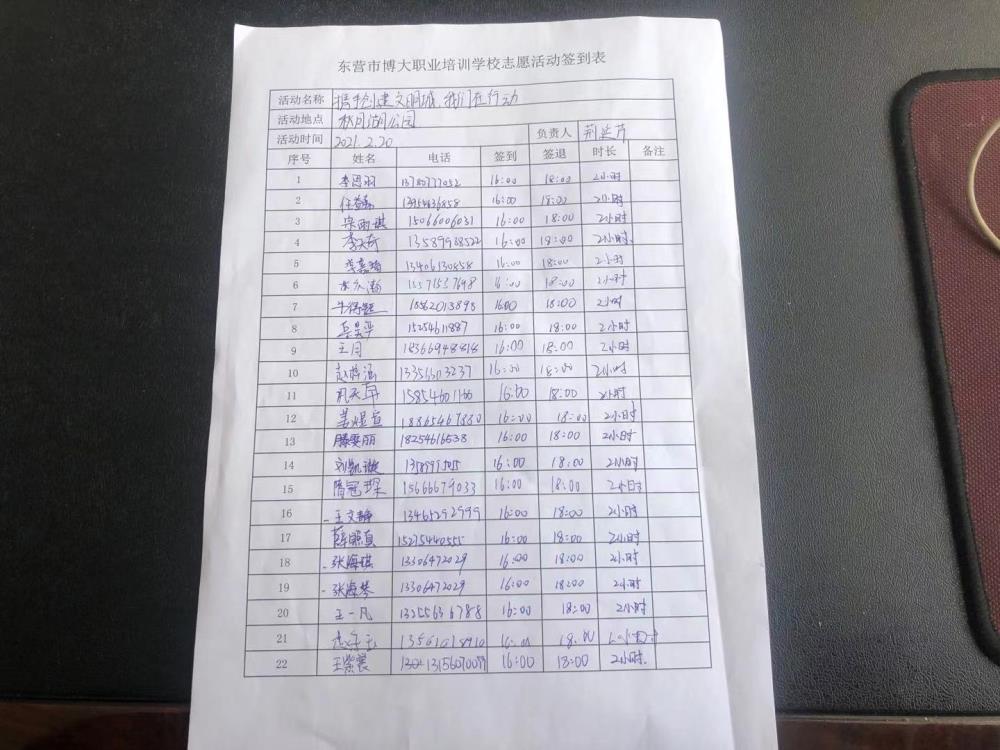 东营市博大职业培训学校志愿活动签到表
活动名称 携手创建文明城,我们在行动
活动地点 秋月湖公园
活动时间 2021.2.20 负责人
序号 姓名 电话 签到 签退 时长 备注
1 李恩羽 13780777052 16:00 18:00 2小时
2 16:00 18:00 2小时
3 宋雨琪 15066006031 16:00 18:00 2小时
4 李天奇 13589988522 16:00 18:00 2小时
5 李嘉琦 13406130858 16:00 18:00 2小时
6 16:00 18:00 2小时
7 18562013898 16:00 18:00 2小时
8 15254611887 16:00 18:00 2小时
9 王月 18366948818 16:00 18:00 2小时
10 赵梓涵 16:00 18:00 2小时
11 15854601166 16:00 18:00 2小时
12 姜煜萱 18865467880 16:00 18:00 2小时
13 滕雯丽 18254616538 16:00 18:00 2小时
14 刘凯璇 16:00 18:00 2小时
15 隋冠琛 15666679033 16:00 18:00 2小时
16 王文静 13465292999 16:00 18:00 2小时
17 薛照真 15275440555 16:00 18:00 2小时
18 张海琪 13306472029 16:00 18:00 2小时
19 张海琴 13306472029 16:00 18:00 2小时
20 王一凡 13255636788 16:00 18:00 2小时
21 13561018910 16:00 18:00
22 王紫襄 16:00 18:00 2小时.